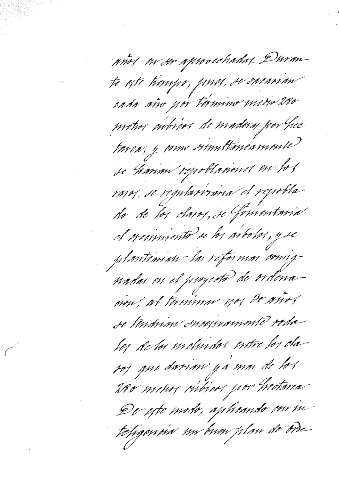 años en ser aprovechadas. Duran-
te este tiempo, pues, se sacarian
cada año por término medio 280
metros cúbicos de maderas por hec-
tarea, y como simultáneamente
se harian repoblaciones en los
rasos, se regularizaria el repobla-
do de los claros, se fomentaria
el crecimiento de los árboles, y se
plantearian las reformas consig-
nadas en el proyecto de ordena-
cion; al terminar los 40 años
se tendrian sucesivamente roda-
les de los incluidos entre los cla-
ros que darian yá mas de los
280 metros cúbicos por hectarea.
De este modo, aplicando con in-
teligencia un buen plan de orde-